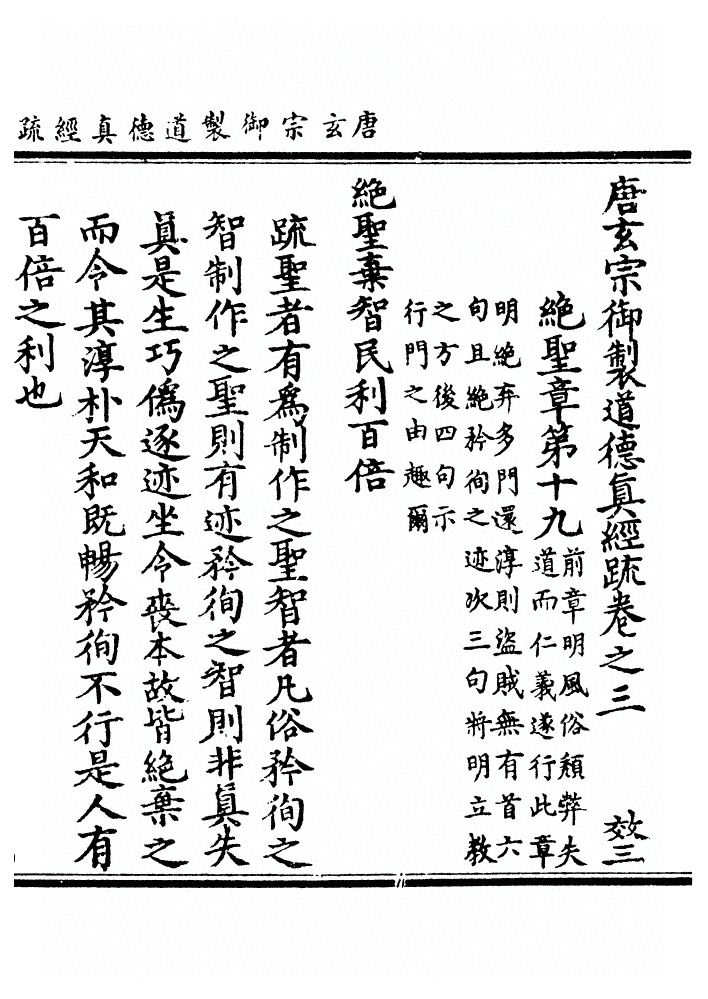 唐玄宗御製道德真經疏
唐玄宗御製道德真經疏卷之三 效三
絕聖章第十九
前章明風俗頹弊失
道而仁義遂行此章
明絕弃多門還淳則盜賊無有首六
句且絕矜徇之迹次三句將明立教
之方後四句示
行門之由趣爾
絕聖棄智民利百倍
疏聖者有為制作之聖智者凡俗矜徇之
智制作之聖則有迹矜徇之智則非真失
真是生巧偽逐迹坐令喪本故皆絕棄之
而令其淳朴天和既暢矜徇不行是人有
百倍之利也